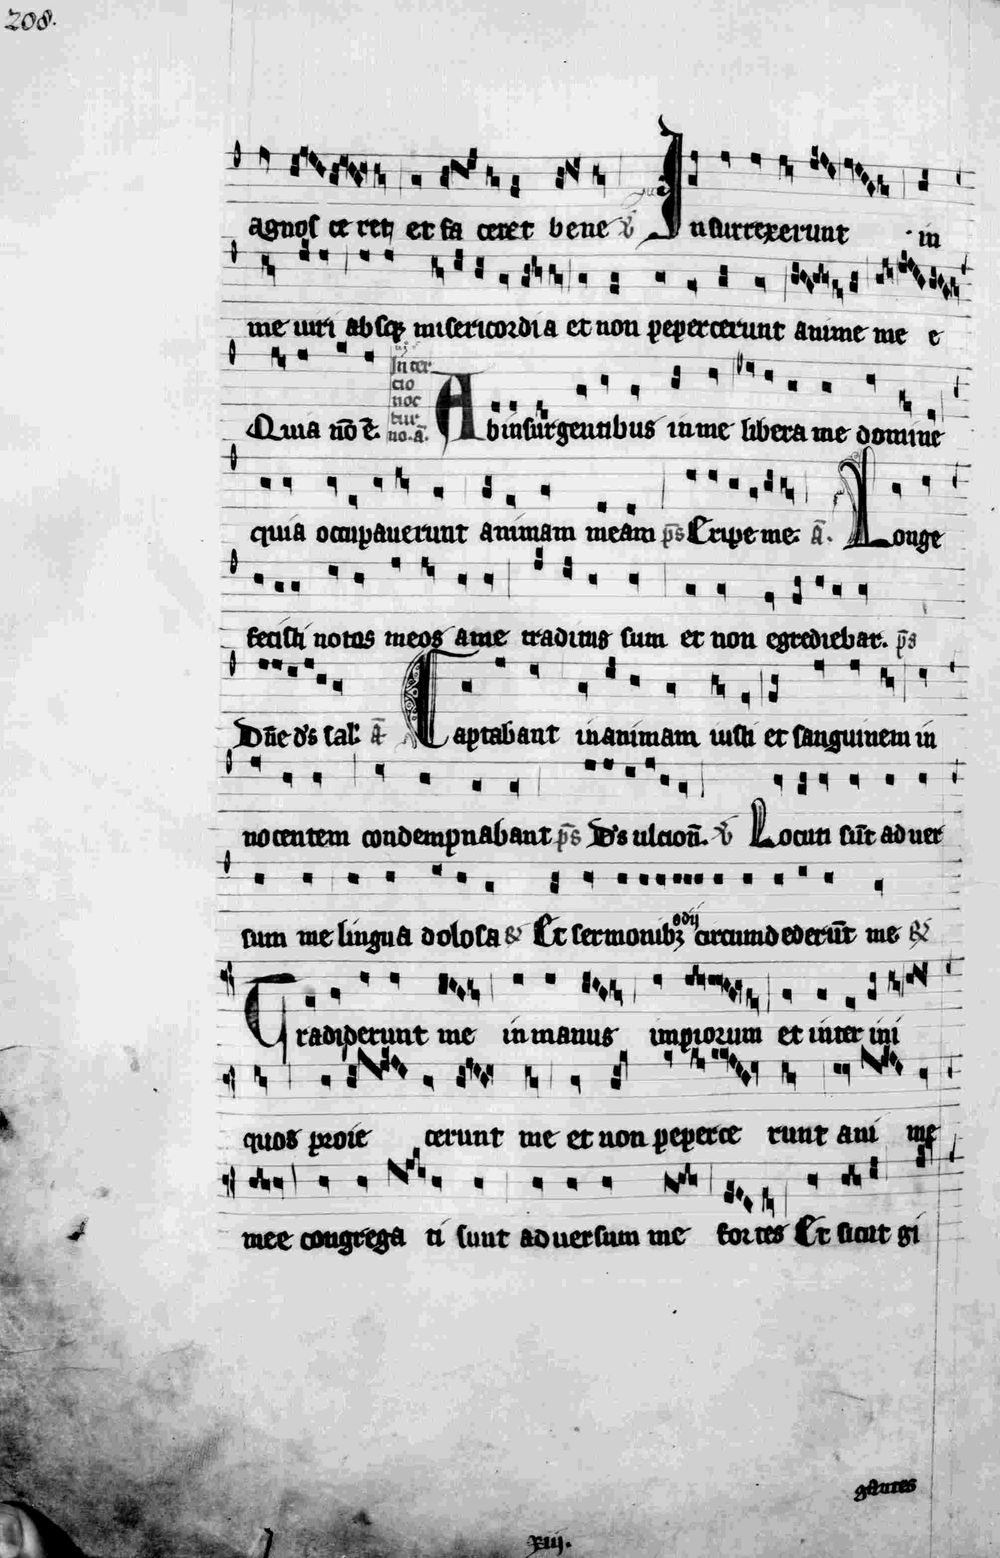 208.
agnosceret et faceret bene ℣ Insurrexerunt in
me viri absq; misericordia et non pepercerunt anime me e
Quia nō ē. In tercio nocturno. ā. Ab insurgentibus in me libera me domine
quia occupauerunt animam meam p̄s Eripe me. ā. Longe
fecisti notos meos a me traditus sum et non egrediebar. p̄s
Dn̄e d's sal. ā Captabant in animam iusti et sanguinem in
nocentem condempnabant p̄s D's ulcion̄. ℣ Locuti sūt aduer
sum me lingua dolosa & Et sermonib; odij circumdederūt me &
Tradiderunt me in manus impiorum et inter ini
quos proiecerunt me et non pepercerunt anime
mee congregati sunt aduersum me fortes Et sicut gi
gantes
xiij.